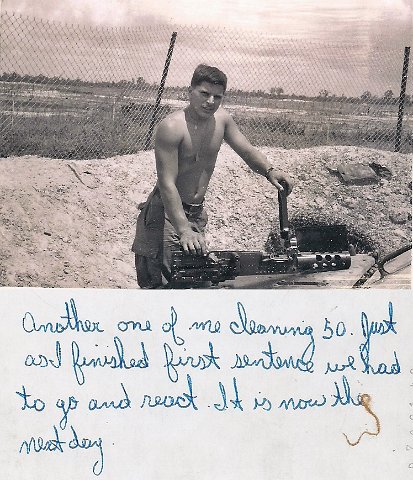 Another one of me cleaning 50. Just
as I finished first sentence we had
to go and react. It is now the
next day.